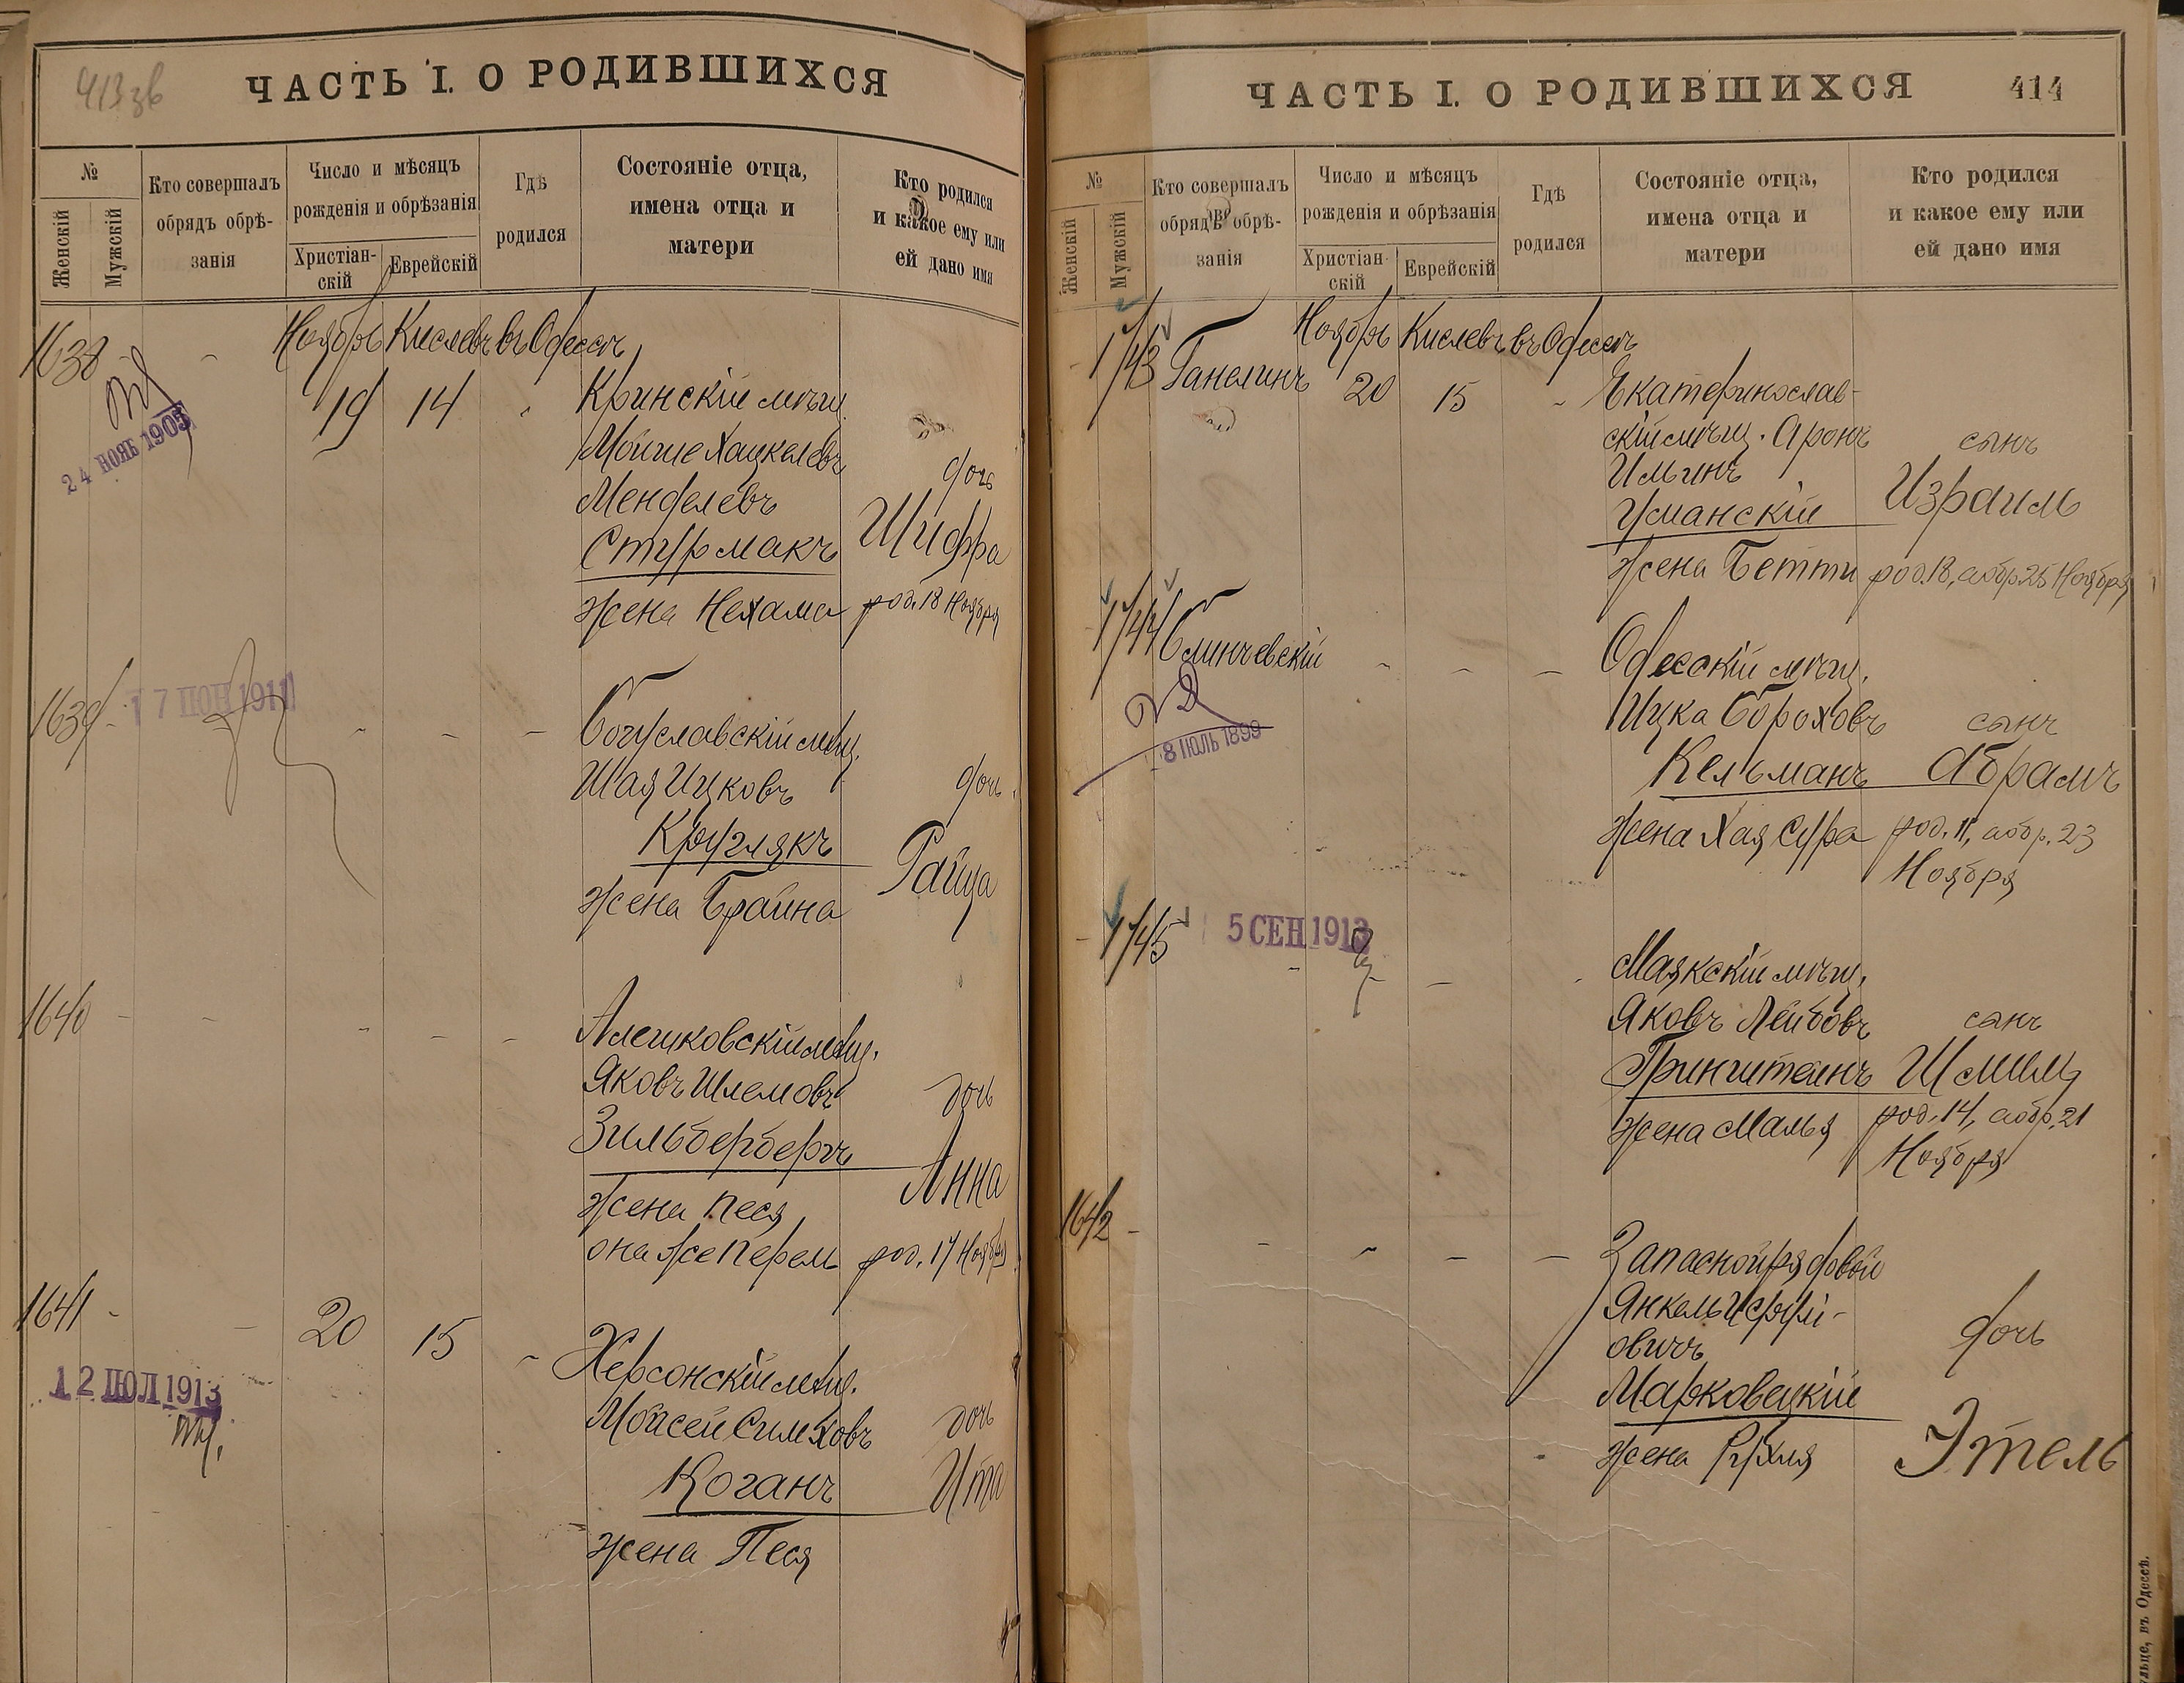 413 зв
ЧАСТЬ I. О РОДИВШИХСЯ
№
Женскій
Мужскій
Кто совершалъ
обрядъ обрѣ-
занія
Число и мѣсяцъ
рожденія и обрѣзанія
Христіан-
скій
Еврейскій
Гдѣ
родился
Состояніе отца,
имена отца и
матери
Кто родился
и какое ему или
ей дано имя
1638 - - Ноябрь Кислевъ въ Одессѣ
19 14 Кринскій мѣщ.
24 НОЯБ 1905
Мойше Хацкелевъ
Менделевъ дочь
Стурмакъ Шифра
жена Нехама род. 18 Ноября
1639 - 17 ІЮН 1911 - - - Богуславскій мѣщ.
Шая Ицковъ дочь
Круглякъ
жена Брайна Райца
1640 - - - - - Алешковскій мѣщ.
Яковъ Шлемовъ дочь
Зильбербергъ
жена Песя Анна
она же Перель род. 17 Ноября
1641 - - 20 15 - Херсонскій мѣщ.
12 ІЮЛ 1913
Мойсей Симховъ дочь
Коганъ Ита
жена Песя
ЧАСТЬ I. О РОДИВШИХСЯ
414
№
Женскій
Мужскій
Кто совершалъ
обрядъ обрѣ-
занія
Число и мѣсяцъ
рожденія и обрѣзанія
Христіан-
скій
Еврейскій
Гдѣ
родился
Состояніе отца,
имена отца и
матери
Кто родился
и какое ему или
ей дано имя
- 1743 Ганелинъ Ноябрь Кислевъ въ Одессѣ
20 15 - Екатеринослав-
скій мѣщ. Аронъ сынъ
Ильинъ
Уманскій Израиль
жена Бетти род. 18, обр. 25 Ноября
- 1744 Слинчевскій - - - Одесскій мѣщ.
8 ІЮЛЬ 1899
Ицка Бороховъ сынъ
Кельманъ Абрамъ
жена Хая Сура род. 11, обр. 23
Ноября
- 1745 5 СЕН 1913
- - Маякскій мѣщ.
Яковъ Лейбовъ сынъ
Гринштейнъ Шмиль
жена Малья род. 14, обр. 21
Ноября
1642 - - - - - Запасной рядовой
Янкель
овичъ дочь
Марковецкій
жена Рухля Этель
въ Одессѣ.